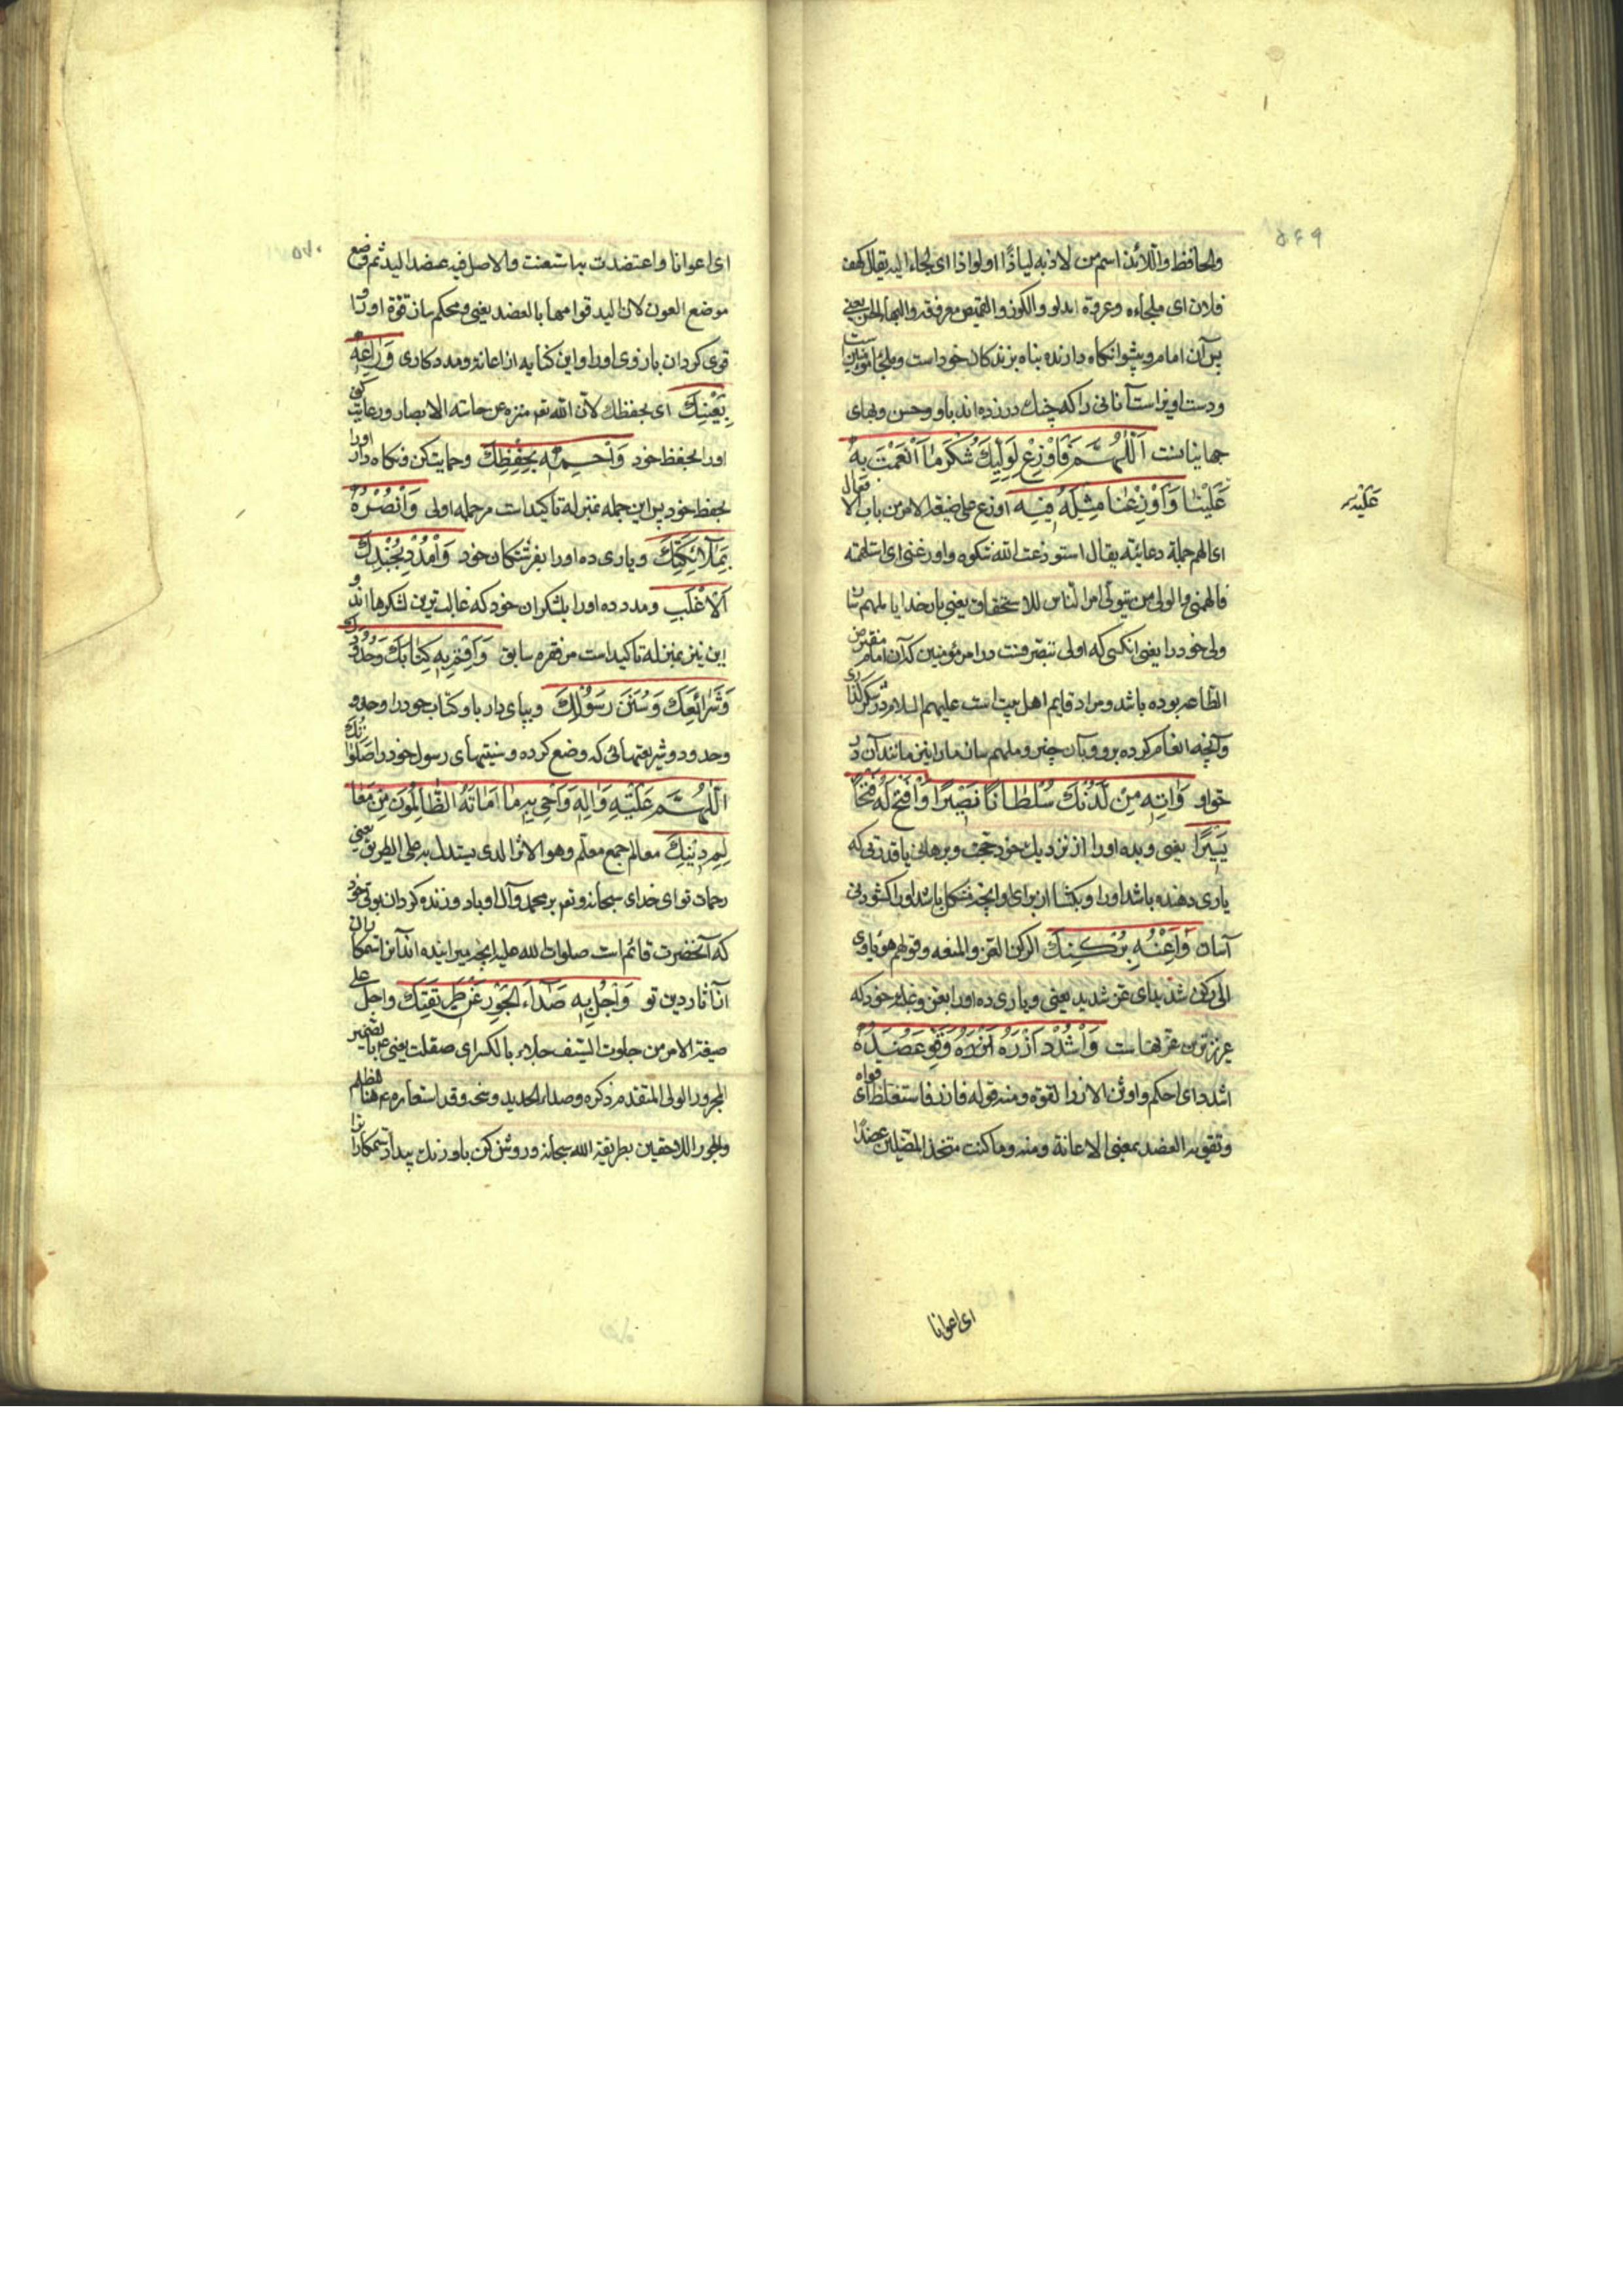 ۵۶۹
والحافظ واللائذ اسم من لاذ به لیاذا اولواذا ای لجاء الیه یقال کهف
فلان ای ملجاءه وعروة الدلو والکوز والقمیص معرفة والبهاء الحسن یعنی
پس آن امام وپیشوا نگاه دارنده پناه برندکان خود است وملجأ مؤمنین است
ودست اویز است آنانی را که چنك درزده اند باو وحسن وبهای
جهانیانست اَللّٰهُمَّ فَاَوْزِعْ لِوَلِیِّكَ شُكْرَ مٰا اَنْعَمْتَ بِهِ
عَلَیْهِ
عَلَیْنٰا وَاَوْزِعْنٰا مِثْلَهُ فِیهِ اوزع علی صیغة الامر من باب الافعال
ای الهم جملة دعائیة یقال استوزعت الله شکره واوزعنی ای استلهمته
فالهمنی والولی من یتولی امر الناس للاستحقاق یعنی بار خدایا ملهم سان
ولی خود را یعنی انکسی که اولی بتصرفست در امر مؤمنین که آن امام مفترض
الطاعه بوده باشد ومراد قایم اهل بیت است علیهم السلام در شکرگذاری
وآنچه انعام کرده برو وبآن چیز وملهم سان ما را نیز مانند آن در
حق او وَاٰتِهِ مِنْ لَدُنْكَ سُلْطٰانًا نَصِیْرًا وَافْتَحْ لَهُ فَتْحًا
یَسِیْرًا یعنی وبده اورا از نزدیك خود حجت وبرهانی یا قدرتی که
یاری دهنده باشد اورا وبکشا از برای او انچه مشکل باشد اورا کشودنی
آسان وَاَعِنْهُ بِرُكْنِكَ الركن العز والمنعه وقولهم هو یاوی
الی رکن شدید ای عز شدید یعنی ویاری ده اورا بعز وغلبه خود که
عزیزترین عزهاست وَاشْدُدْ اَزْرَهُ وَقَوِّ عَضُدَهُ
اشدد ای احکم واوثق الازر القوة ومنه قوله فازره فاستغلظ ای قواه
وتقویه العضد بمعنی الاعانة ومنه وما کنت متخذ المضلین عضدا
ای اعوانا
۵۷۰
ای اعوانا واعتضدت به استعنت والاصل فیه عضد الید ثم وضع
موضع العون لان الید قوامها بالعضد یعنی ومحکم سان قوة اورا و
قوی کردان بازوی اورا واین کنایه از اعانة ومددکاری وَرٰاعِهِ
بِعَیْنِكَ ای بحفظك لان الله تعم منزه عن حاسته الابصار ورعایت کن
اورا بحفظ خود وَاحْمِهِ بِحِفْظِكَ وحمایت کن ونگاه دار اورا
بحفظ خود پس این جمله بمنزله تاکیدات مر جمله اولی وَانْصُرْهُ
بِمَلٰائِكَتِكَ ویاری ده اورا بفرشتکان خود وَامْدُدْهُ بِجُنْدِكَ
اَلْاَغْلَبِ ومدد ده اورا بلشکران خود که غالب ترین لشکرها اند و
این نیز بمنزله تاکید است مر فقره سابق وَاَقِمْ بِهِ كِتٰابَكَ وَحُدُودَكَ
وَشَرٰائِعَكَ وَسُنَنَ رَسُوْلِكَ وبپای دار باو کتاب خود را وحدود
وحدود وشریعتهائی که وضع کرده وسنیتهای رسول خود را صَلَوٰاتُكَ
اَللّٰهُمَّ عَلَیْهِ وَاٰلِهِ وَاَحْیِ بِهِ مٰا اَمٰاتَهُ الظّٰالِمُوْنَ مِنْ مَعٰا
لِمِ دِیْنِكَ معالم جمع معلم وهو الاثر الذی یستدل به علی الطریق یعنی
رحمات تو ای خدای سبحانه وتعم بر محمد وآل او باد وزنده کردان بولی خود
که آنحضرت قائم است صلوات الله علیه انچه میرانیده اند آنرا ستمکاران
از آثار دین تو وَاجْلُ بِهِ صَدٰاءَ الْجَوْرِ عَنْ طَرِیْقَتِكَ واجل علی
صیغة الامر من جلوت السیف جلاء بالکسر ای صقلت یعنی به بالضمیر
المجرور الولی المتقدم ذکره وصداء الحدید وسخه وقد استعاره ع هنا للظلم
والجور اللاحقین بطریقة الله سبحانه وروشن کن باو زنك بیداد ستمکارانرا